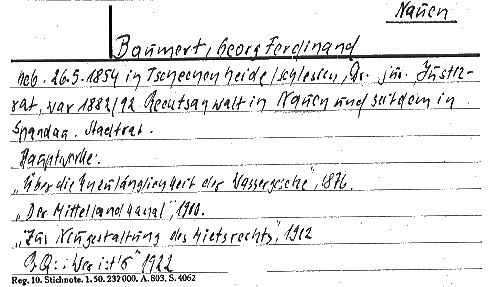 Nauen
Baumert, Georg Ferdinand
geb. 26.5.1854 in Tscheechenheide/Schlesien, Dr. jur. Justiz-
rat, war 1882/92 Rechtsanwalt in Nauen und seitdem in
Spandau. Stadtrat.
Hauptwerke:
„Über die Unzulänglichkeit der Wassergesetze", 1876.
„Der Mittellandkanal", 1900.
„Zur Neugestaltung des Mietsrechts", 1912
B.Q.: Wer ist's 1922
Reg. 10. Stichnote. 1. 50. 232 000. A. 803. S. 4062